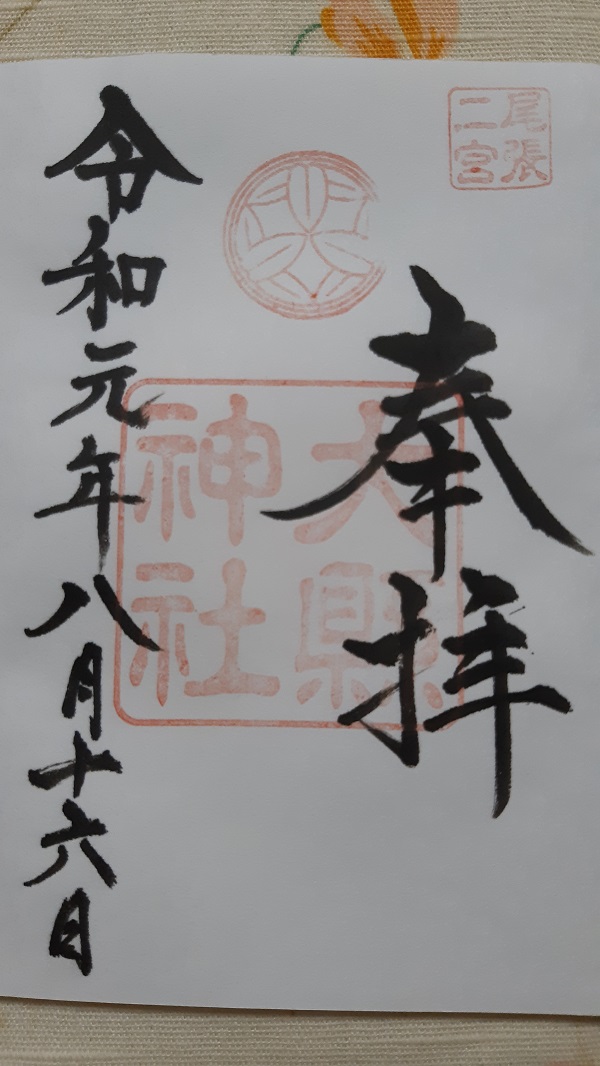 尾張
二宮
奉拝
大縣
神社
令和元年八月十六日